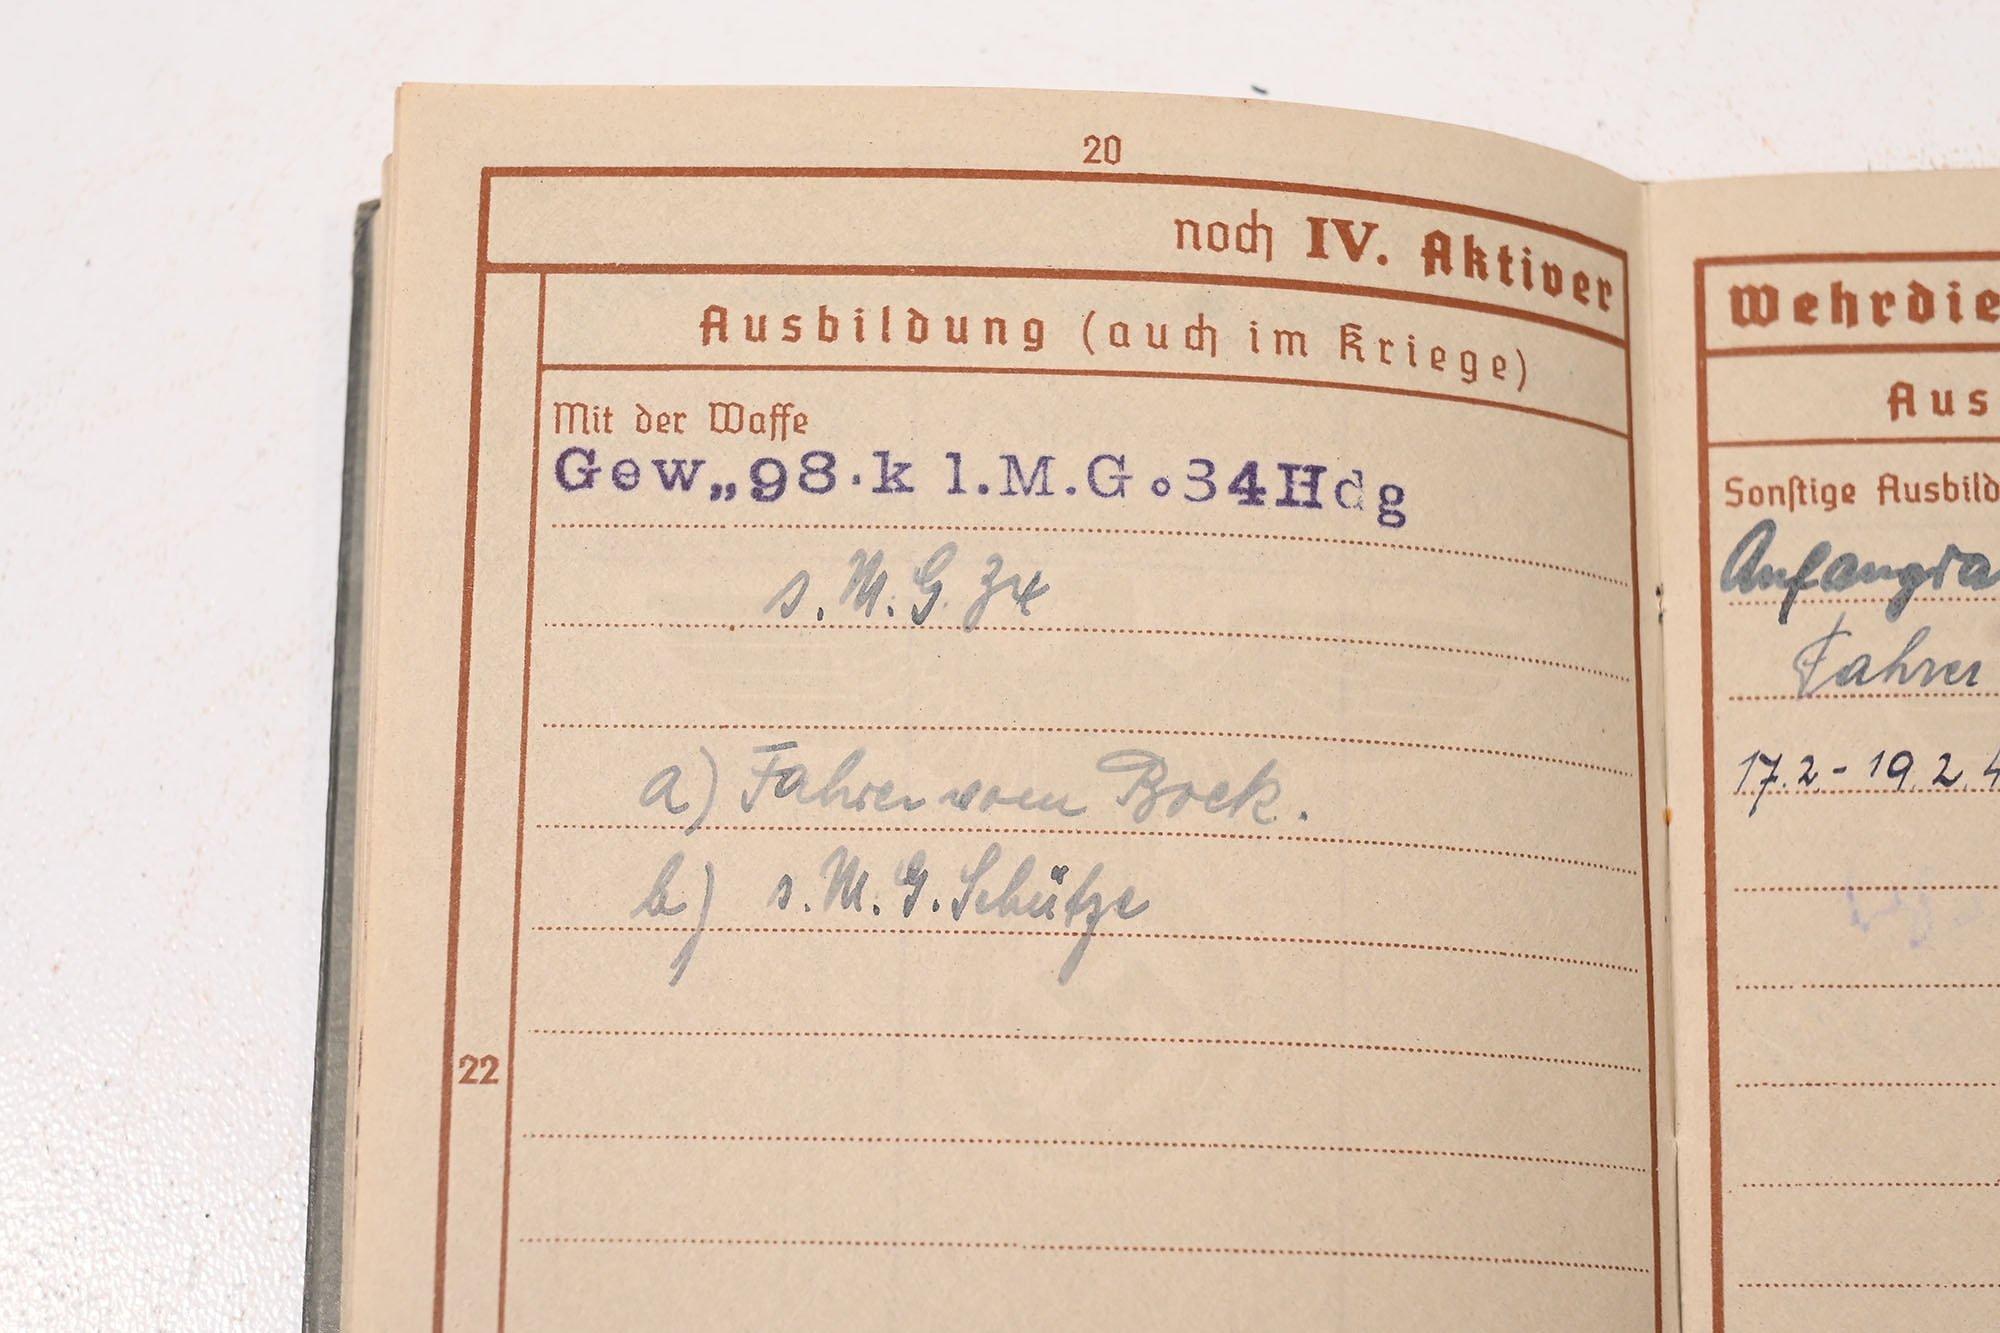 20
noch IV. Aktiver
Ausbildung (auch im Kriege)
Mit der Waffe
Gew„98.k l.M.G.34Hdg
s. M. G. 34
a) Fahrer vom Bock.
b) s. M. G. Schütze
22
Wehrdie
Aus
Sonstige Ausbild
Fahrer
17.2.-19.2.4